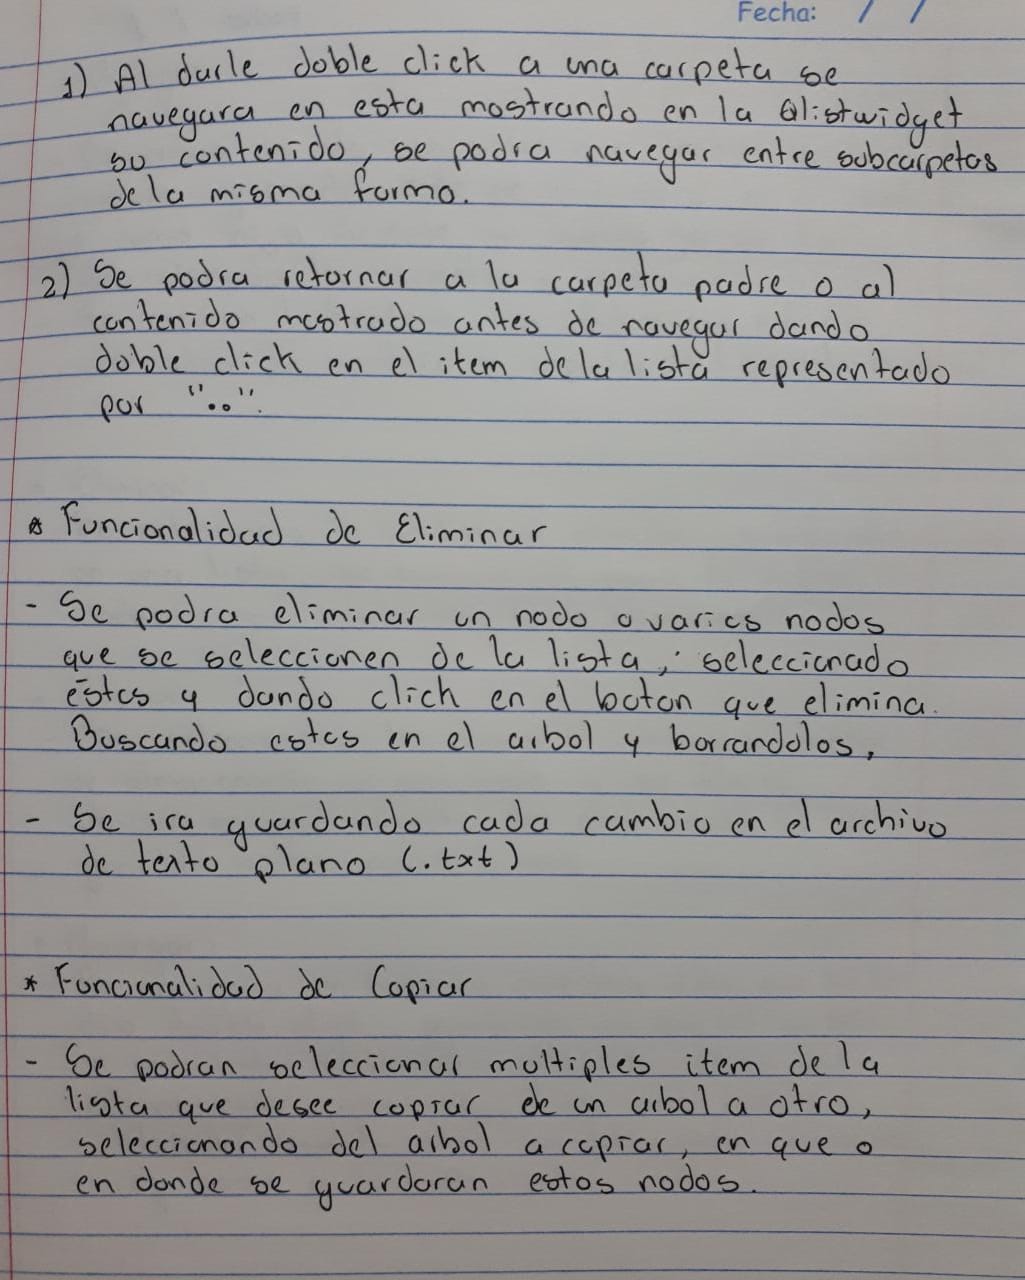 Fecha: / /
1) Al darle doble click a una carpeta se
navegara en esta mostrando en la Qlistwidget
su contenido, se podra navegar entre subcarpetas
de la misma forma.
2) Se podra retornar a la carpeta padre o al
contenido mostrado antes de navegar dando
doble click en el item de la lista representado
por "..".
* Funcionalidad de Eliminar
- Se podra eliminar un nodo o varios nodos
que se seleccionen de la lista, seleccionado
estos y dando click en el boton que elimina.
Buscando estos en el arbol y borrandolos,
- Se ira guardando cada cambio en el archivo
de texto plano (.txt)
* Funcionalidad de Copiar
- Se podran seleccionar multiples item de la
lista que desee copiar de un arbol a otro,
seleccionando del arbol a copiar, en que o
en donde se guardaran estos nodos.